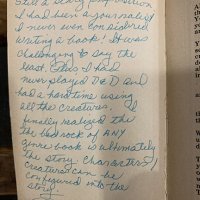 still a scary proposition
I had been a journalist
never even considered
writing a book! It was
challenging to say the
least. Plus I had
never played D&D and
had a hard time using
all the creatures. I
finally realized the
the bedrock of ANY
genre book is ultimately
the story. Characters/
creatures can be
configured into the
story.